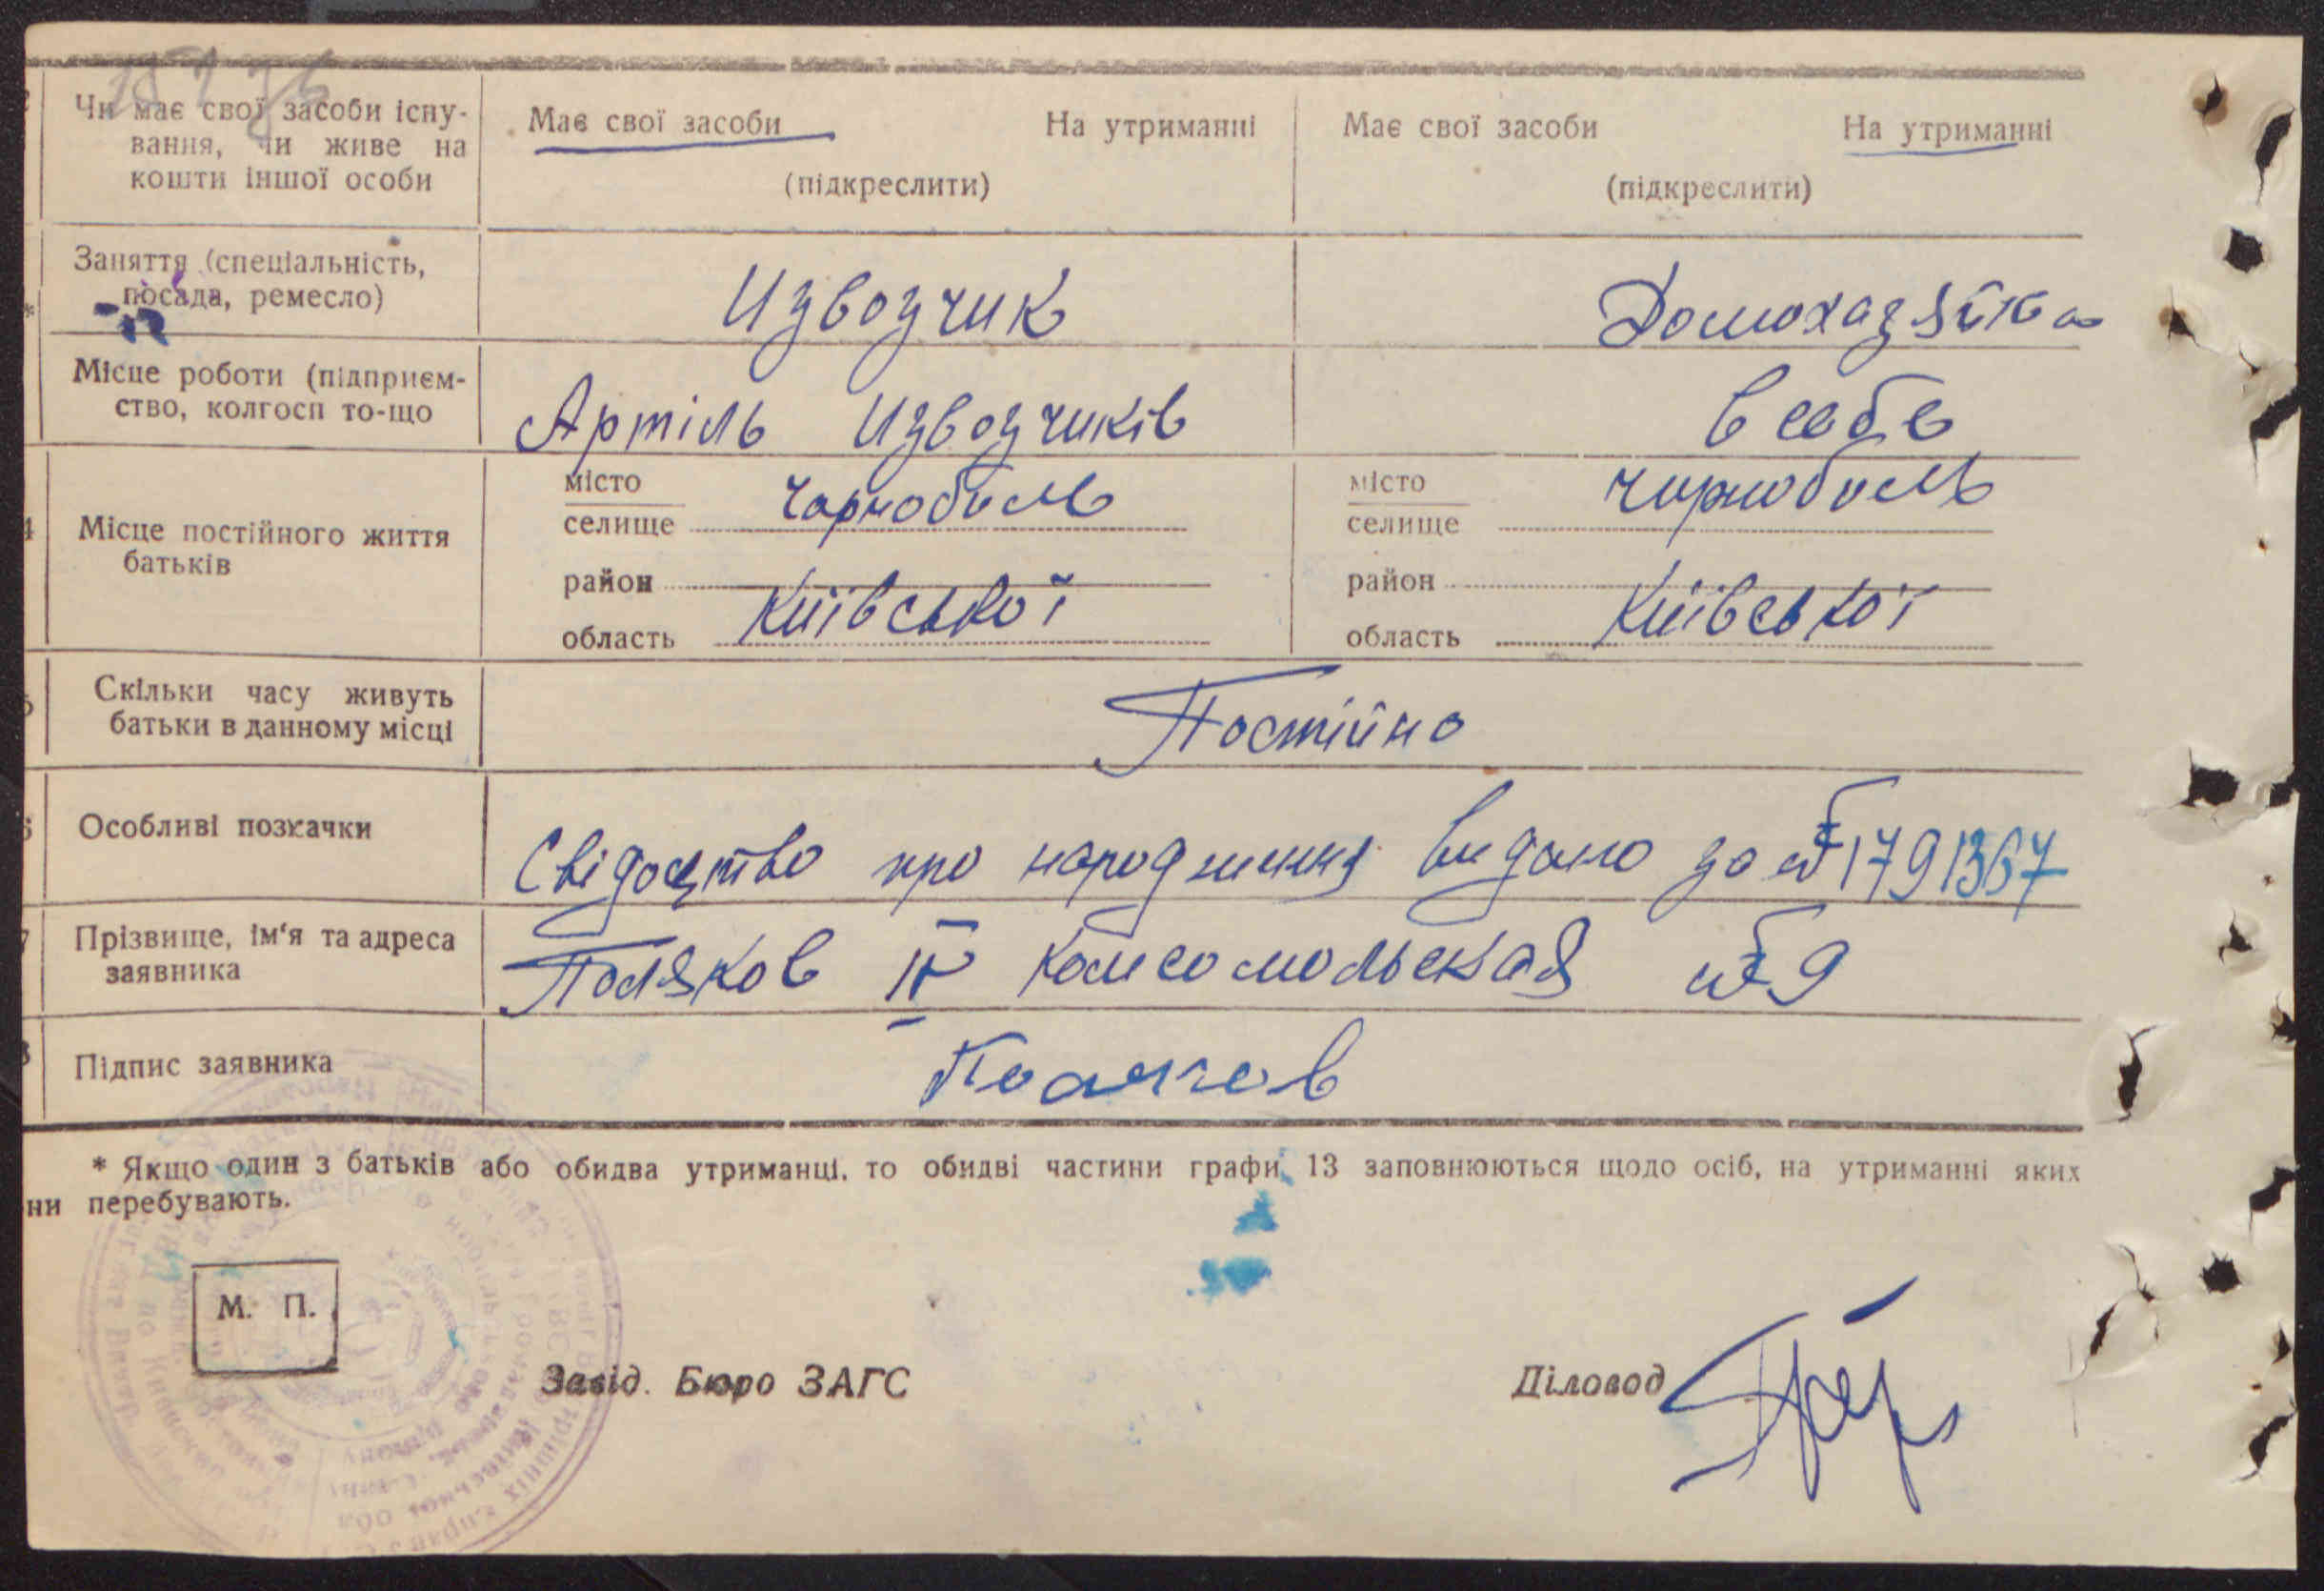 Чи має свої засоби існу-
вання, чи живе на
кошти іншої особи
Має свої засоби На утриманні
(підкреслити)
Має свої засоби На утриманні
(підкреслити)
Заняття (спеціальність,
посада, ремесло)
Извозчик
Домохазяйка
Місце роботи (підприєм-
ство, колгосп то-що
Артіль Извозчиків
в себе
4 Місце постійного життя
батьків
місто
селище Чорнобиль
район
область Київської
місто
селище Чорнобиль
район
область Київської
Скільки часу живуть
батьки в данному місці
Постійно
Особливі позначки
Свідоцтво про народження видано за № 1791367
Прізвище, ім'я та адреса
заявника
Поляков II Комсомольская № 9
Підпис заявника
Поляков
* Якщо один з батьків або обидва утриманці, то обидві частини графи 13 заповнюються щодо осіб, на утриманні яких
ни перебувають.
М. П.
Завід. Бюро ЗАГС
Діловод